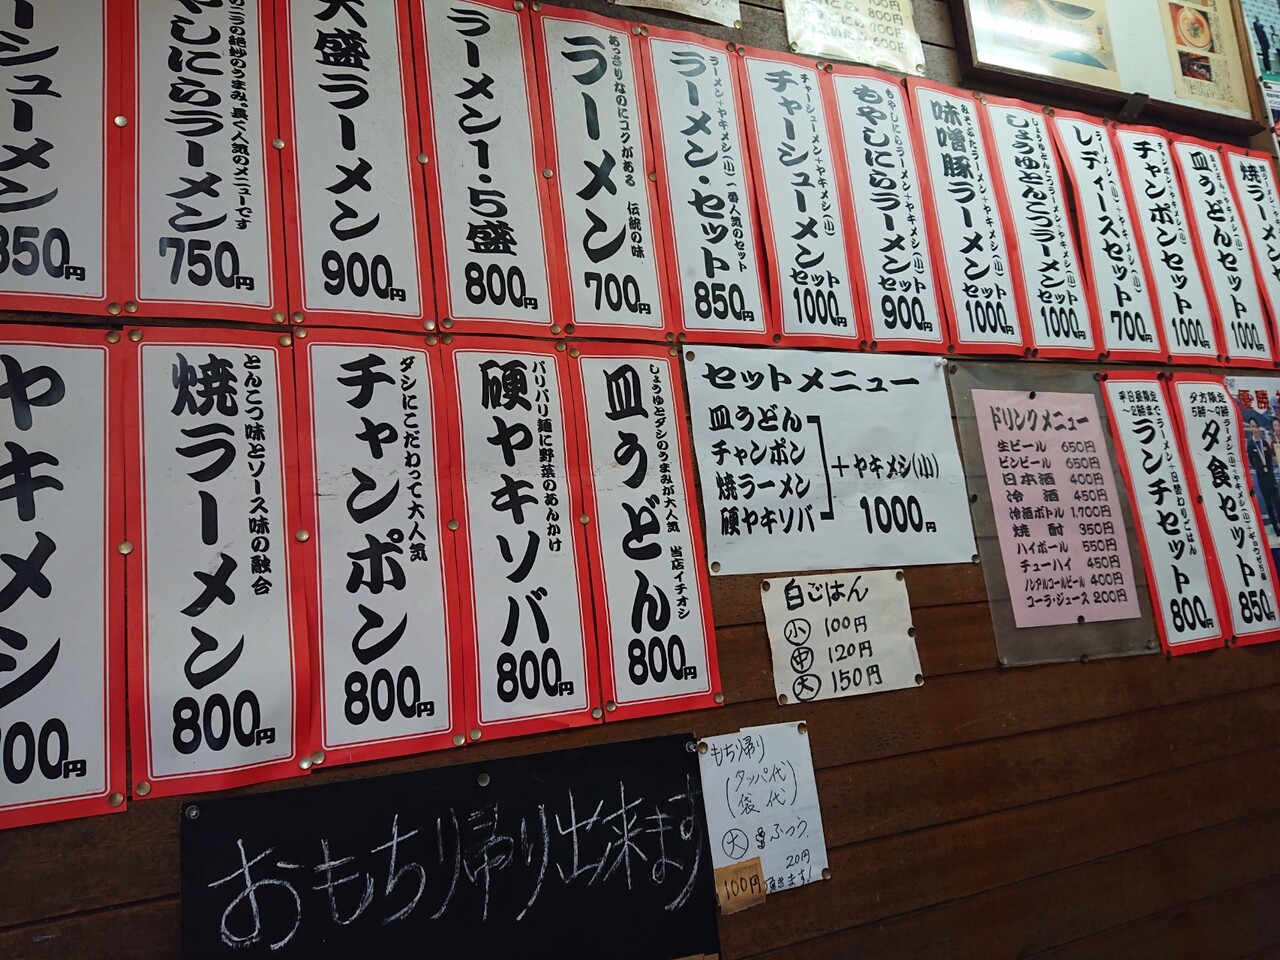 ーシューメン
850円
もやしにらラーメン
750円
大盛ラーメン
900円
ラーメン1.5盛
800円
あっさりなのにコクがある 伝統の味
ラーメン
700円
ラーメン+ヤキメシ(小) 一番人気のセット
ラーメン・セット
850円
チャーシューメン+ヤキメシ(小)
チャーシューメンセット
1000円
もやしにらラーメン+ヤキメシ(小)
もやしにらラーメンセット
900円
味噌豚ラーメンセット
1000円
しょうゆとんこつラーメン+ヤキメシ(小)
しょうゆとんこつラーメンセット
1000円
ラーメン(小)+ヤキメシ(小)
レディースセット
700円
チャンポン+ヤキメシ(小)
チャンポンセット
1000円
皿うどん+ヤキメシ(小)
皿うどんセット
1000円
焼ラーメン
ヤキメシ
00円
とんこつ味とソース味の融合
焼ラーメン
800円
ダシにこだわって大人気
チャンポン
800円
パリパリ麺に野菜のあんかけ
硬ヤキソバ
800円
しょうゆとダシのうまみが大人気 当店イチオシ
皿うどん
800円
セットメニュー
皿うどん
チャンポン
焼ラーメン
硬ヤキソバ
+ヤキメシ(小)
1000円
白ごはん
小 100円
中 120円
大 150円
ドリンクメニュー
生ビール 650円
ビンビール 650円
日本酒 400円
冷酒 450円
冷酒ボトル 1,700円
焼酎 350円
ハイボール 550円
チューハイ 450円
ノンアルコールビール 400円
コーラ・ジュース 200円
平日昼限定
~2時まで
ラーメン+日替わりごはん
ランチセット
800円
夕方限定
5時~9時
ラーメン+ヤキメシ(小)+ギョウザ5個
夕食セット
850円
優勝
おもち帰り出来ます
もち帰り
(タッパ代
袋代)
大 ふつう
20円
100円 頂きます!